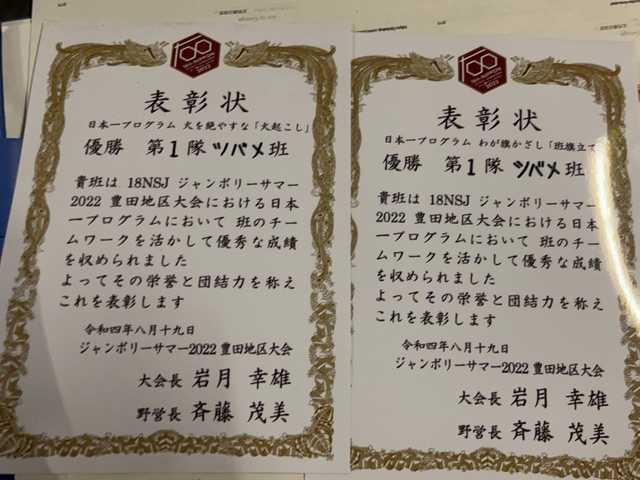 表彰状
日本一プログラム 火を絶やすな「火起こし」
優勝 第1隊 ツバメ班
貴班は 18NSJ ジャンボリーサマー
2022 豊田地区大会における日本
一プログラムにおいて 班のチー
ムワークを活かして優秀な成績
を収められました
よってその栄誉と団結力を称え
これを表彰します
令和四年八月十九日
ジャンボリーサマー2022 豊田地区大会
大会長 岩月 幸雄
野営長 斉藤 茂美
表彰状
日本一プログラム わが旗かざし「班旗立て
優勝 第1隊 ツバメ班
貴班は 18NSJ ジャンボリーサマー
2022 豊田地区大会における日本
一プログラムにおいて 班のチー
ムワークを活かして優秀な成績
を収められました
よってその栄誉と団結力を称え
これを表彰します
令和四年八月十九日
ジャンボリーサマー2022 豊田地区大会
大会長 岩月 幸雄
野営長 斉藤 茂美